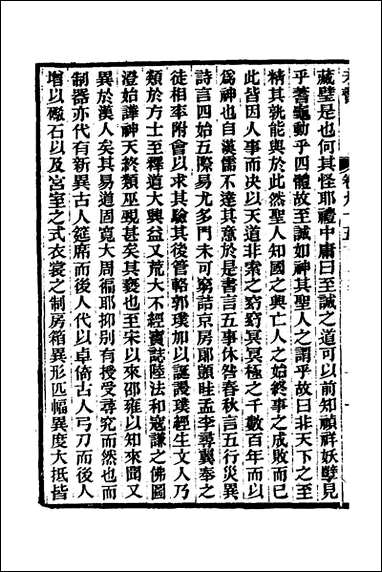 藏壁是也何其怪耶禮中庸曰至誠之道可以前知禎祥妖孽見
乎蓍龜動乎四體故至誠如神其聖人之謂乎故曰非天下之至
精其孰能與於此然聖人知國之興亡人之始終事之成敗而已
此皆因人事而決以天道非索之窈窈冥冥極之千數百年而以
爲神也自漢儒不達其意於是書言五事休咎春秋言五行災異
詩言四始五際易尤多門未可窮詰京房耶顗眭孟李尋翼奉之
徒相率附會以求其驗其後管輅郭璞加以誕謾璞經生文人乃
類於方士至釋道大興益又荒大不經寶誌陸法和寇謙之佛圖
澄始譁神天終類巫覡甚矣其褻也至宋以來邵雍以知來聞又
異於漢人矣其易道固寬大周褔耶抑别有授受尋究而然也而
制器亦代有新異古人筵席而後人代以卓倚古人弓刀而後人
增以礮石以及宮室之式衣裳之制房箱異形匹幅異度大抵皆